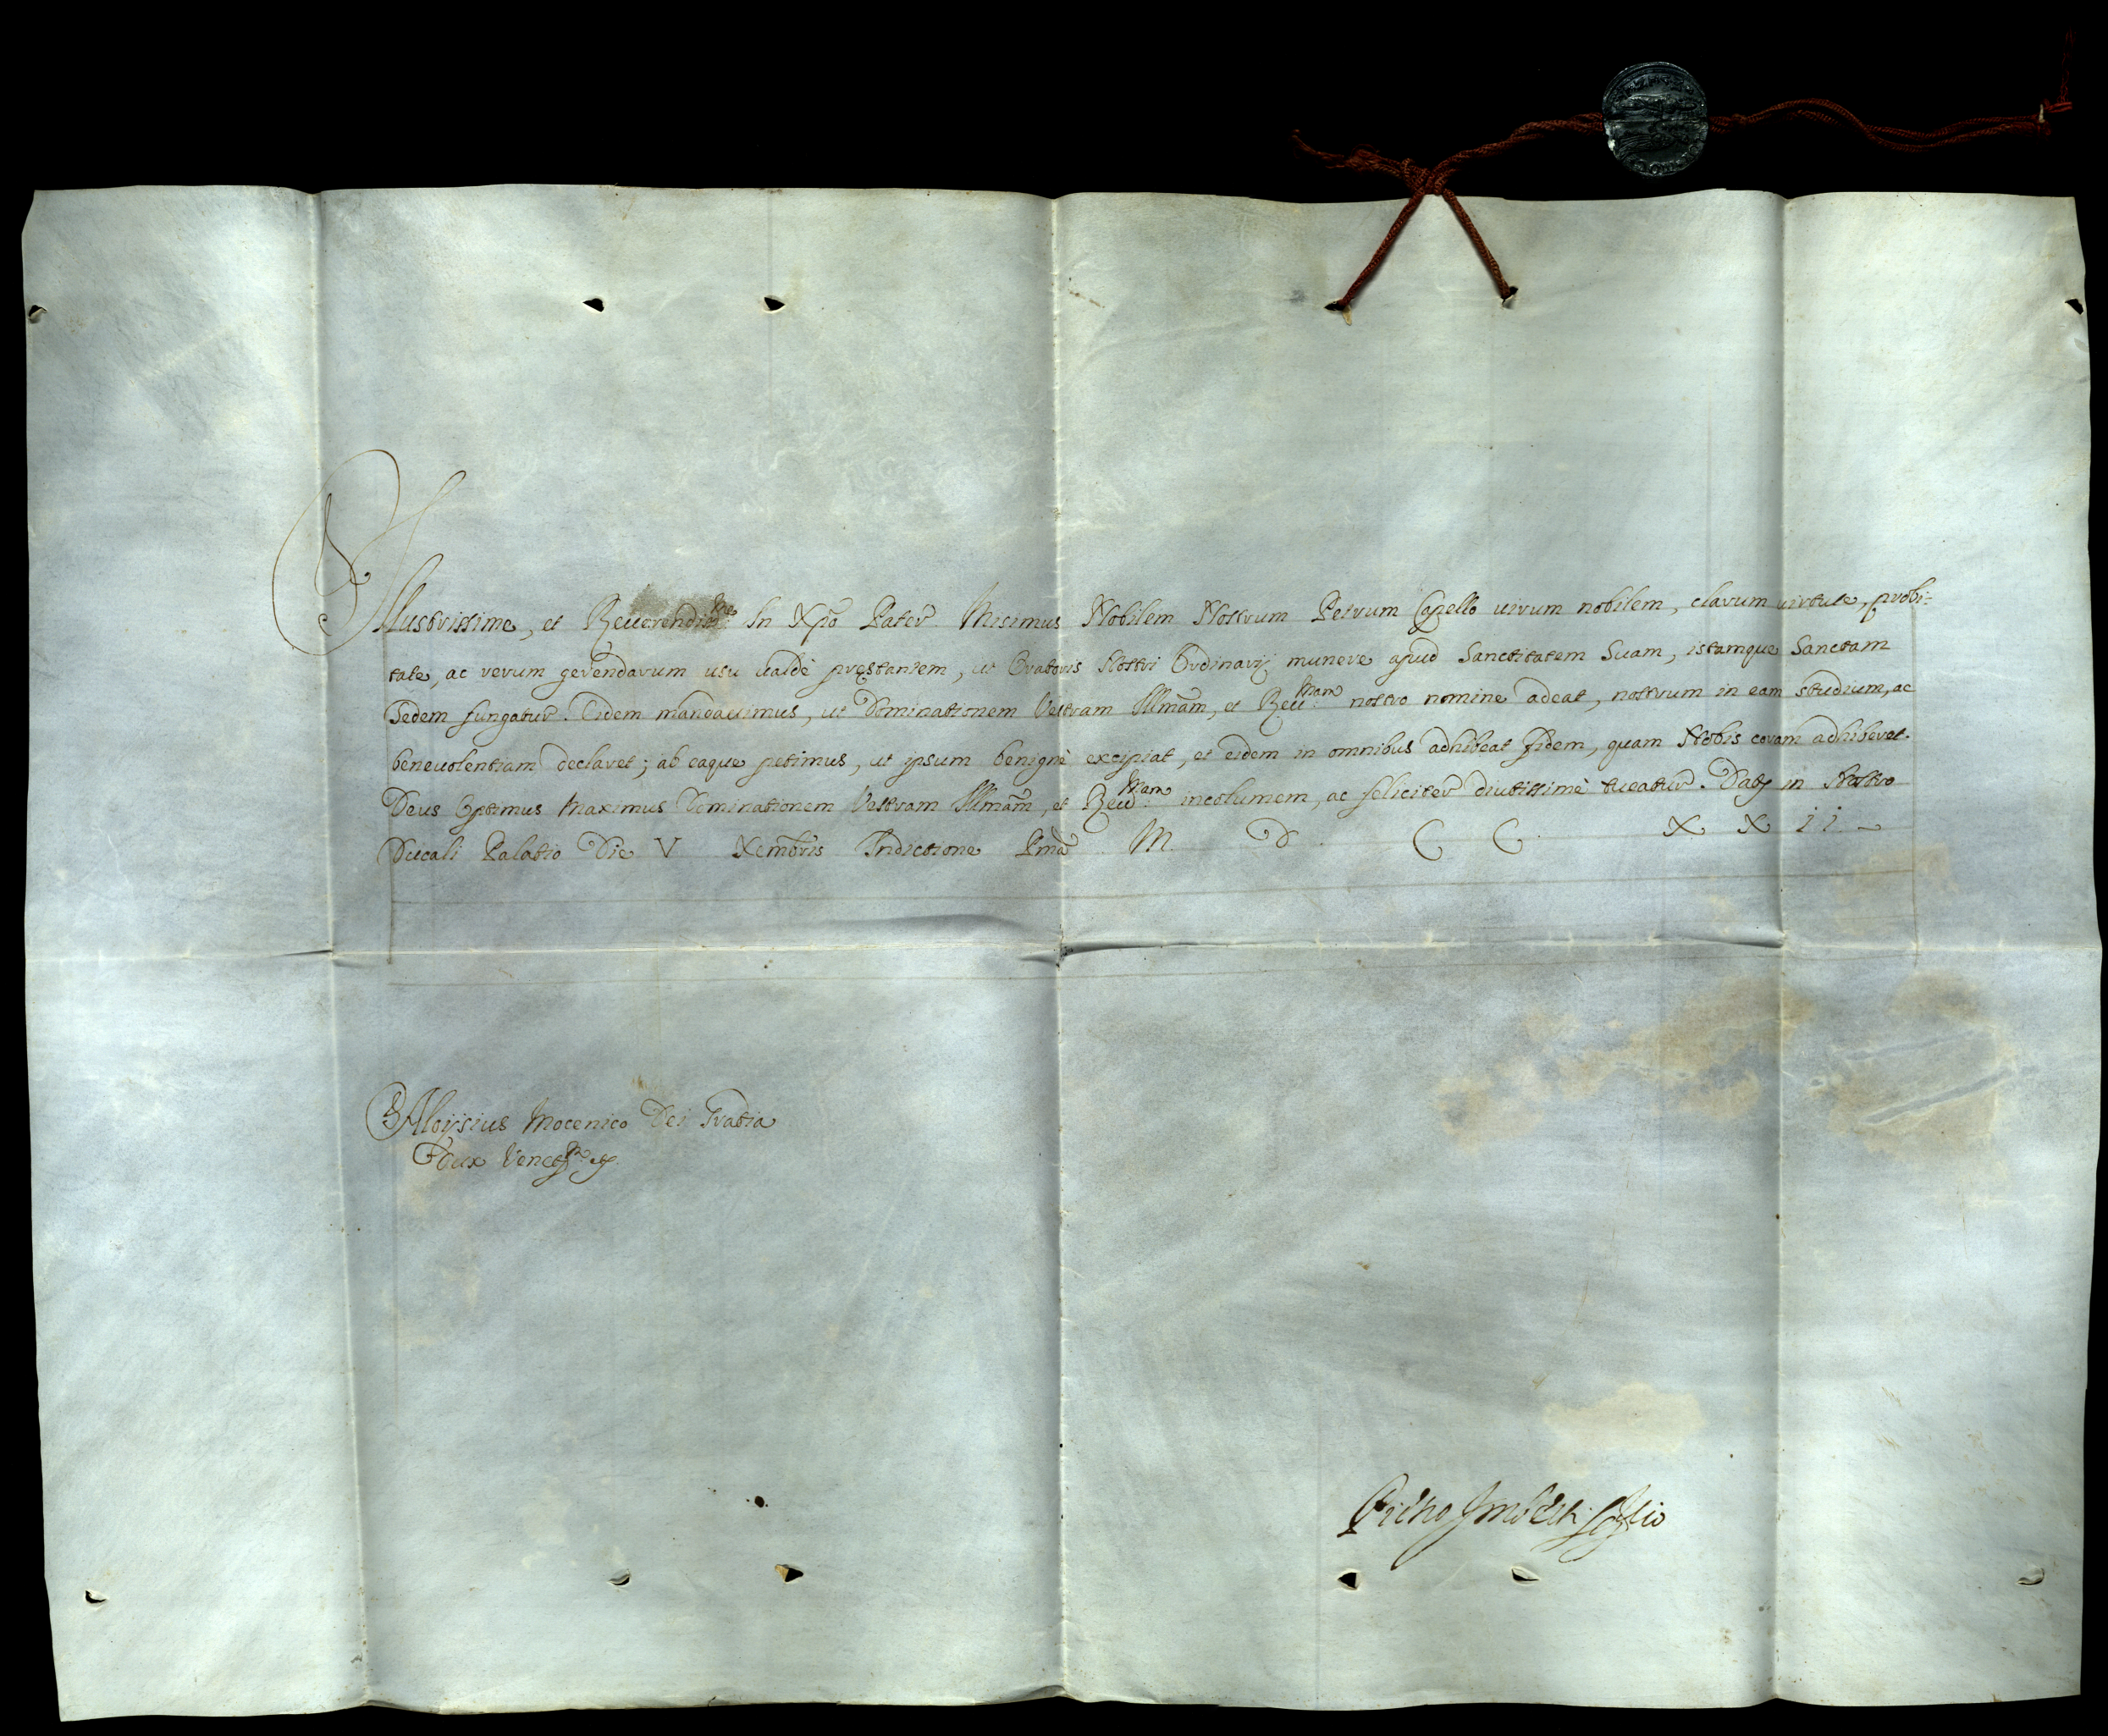 Illustrissime, et Reuerendiss.me In Xpõ Pater Misimus Nobilem Nostrum Petrum Capello uirum nobilem, clarum uirtute, probi=
tate, ac rerum gerendarum usu ualdè pręstantem, ut Oratoris Nostri Ordinarij munere apud Sanctitatem Suam, istamque Sanctam
Sedem fungatur. Eidem mandauimus, ut Dominationem Vestram Illmãm, et Reu.mam nostro nomine adeat, nostrum in eam studium, ac
beneuolentiam declaret; ab eaque petimus, ut ipsum benignè excipiat, et eidem in omnibus adhibeat fidem, quam Nobis coram adhiberet.
Deus Optimus Maximus Dominationem Vestram Illmãm, et Reu.mam incolumem, ac feliciter diutissimè tueatur. Datę in Nostro
Ducali Palatio Die V Xembris Indictione Pmã M. D. C C. X X i i
Aloysius Mocenico Dei Gratia
Dux Venet.r etc.